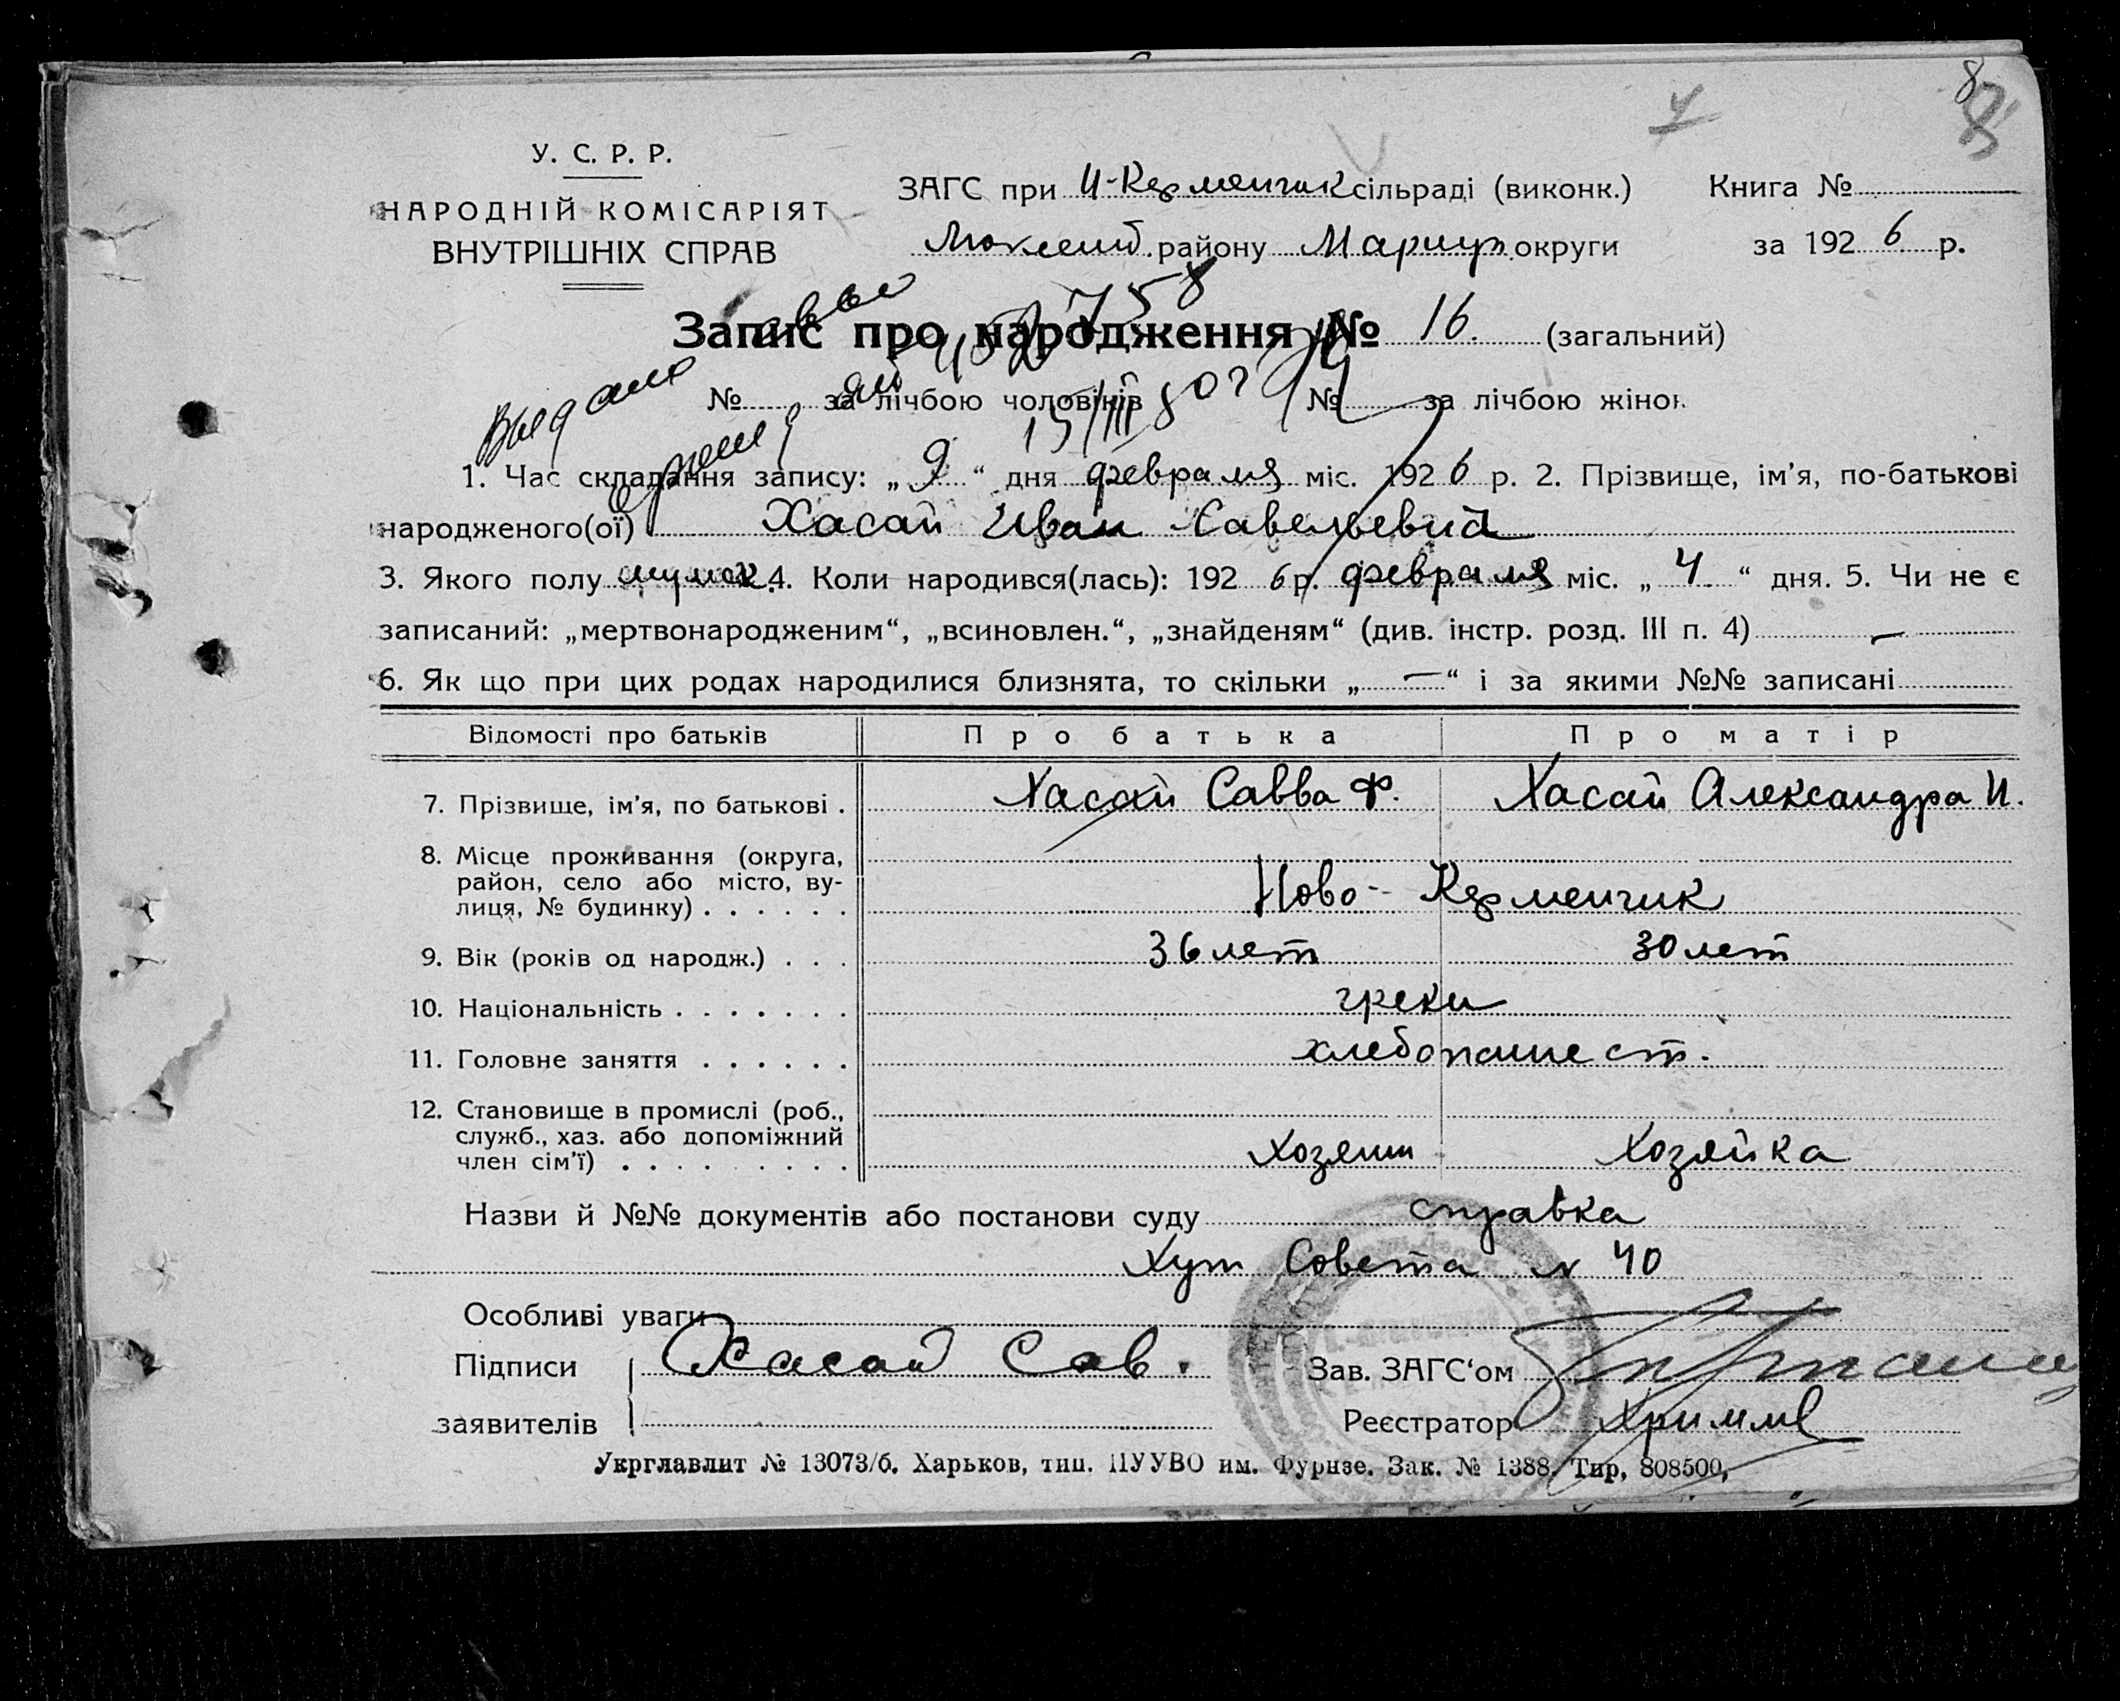 8
У. С. Р. Р.
НАРОДНІЙ КОМІСАРІЯТ
ВНУТРІШНІХ СПРАВ
ЗАГС при Н-Керменчик сільраді (виконк.) Книга №
району Мариуп. округи за 192 6 р.
Запис про народження № 16. (загальний)
№ за лічбою чоловіків № за лічбою жінок
Выдано
1. Час складання запису: „ 9 “ дня февраля міс. 192 6 р. 2. Прізвище, ім’я, по-батькові
народженого(ої) Хасай Иван Савельевич
3. Якого полу мужск. 4. Коли народився(лась): 192 6 р. февраля міс. „ 4. “ дня. 5. Чи не є
записаний: „мертвонародженим“, „всиновлен.“, „знайденям“ (див. інстр. розд. III п. 4) —
6. Як що при цих родах народилися близнята, то скільки „ — “ і за якими №№ записані
Відомості про батьків Про батька Про матір
7. Прізвище, ім’я, по батькові . Хасай Савва Ф. Хасай Александра И.
8. Місце проживання (округа,
район, село або місто, ву-
лиця, № будинку) . . . . . . Ново-Керменчик
9. Вік (років од народж.) . . . 36 лет 30 лет
10. Національність . . . . . . . греки
11. Головне заняття . . . . . . хлебопашест.
12. Становище в промислі (роб.,
служб., хаз. або допоміжний
член сім’ї) . . . . . . . . . Хозяин Хозяйка
Назви й №№ документів або постанови суду справка
Хут Совета № 40
Особливі уваги
Підписи Хасай Сав. Зав. ЗАГС‘ом
заявителів Реєстратор
Укрглавлит № 13073/б. Харьков, тип. ПУУВО им. Фрунзе. Зак. № 1388. Тир, 808500,